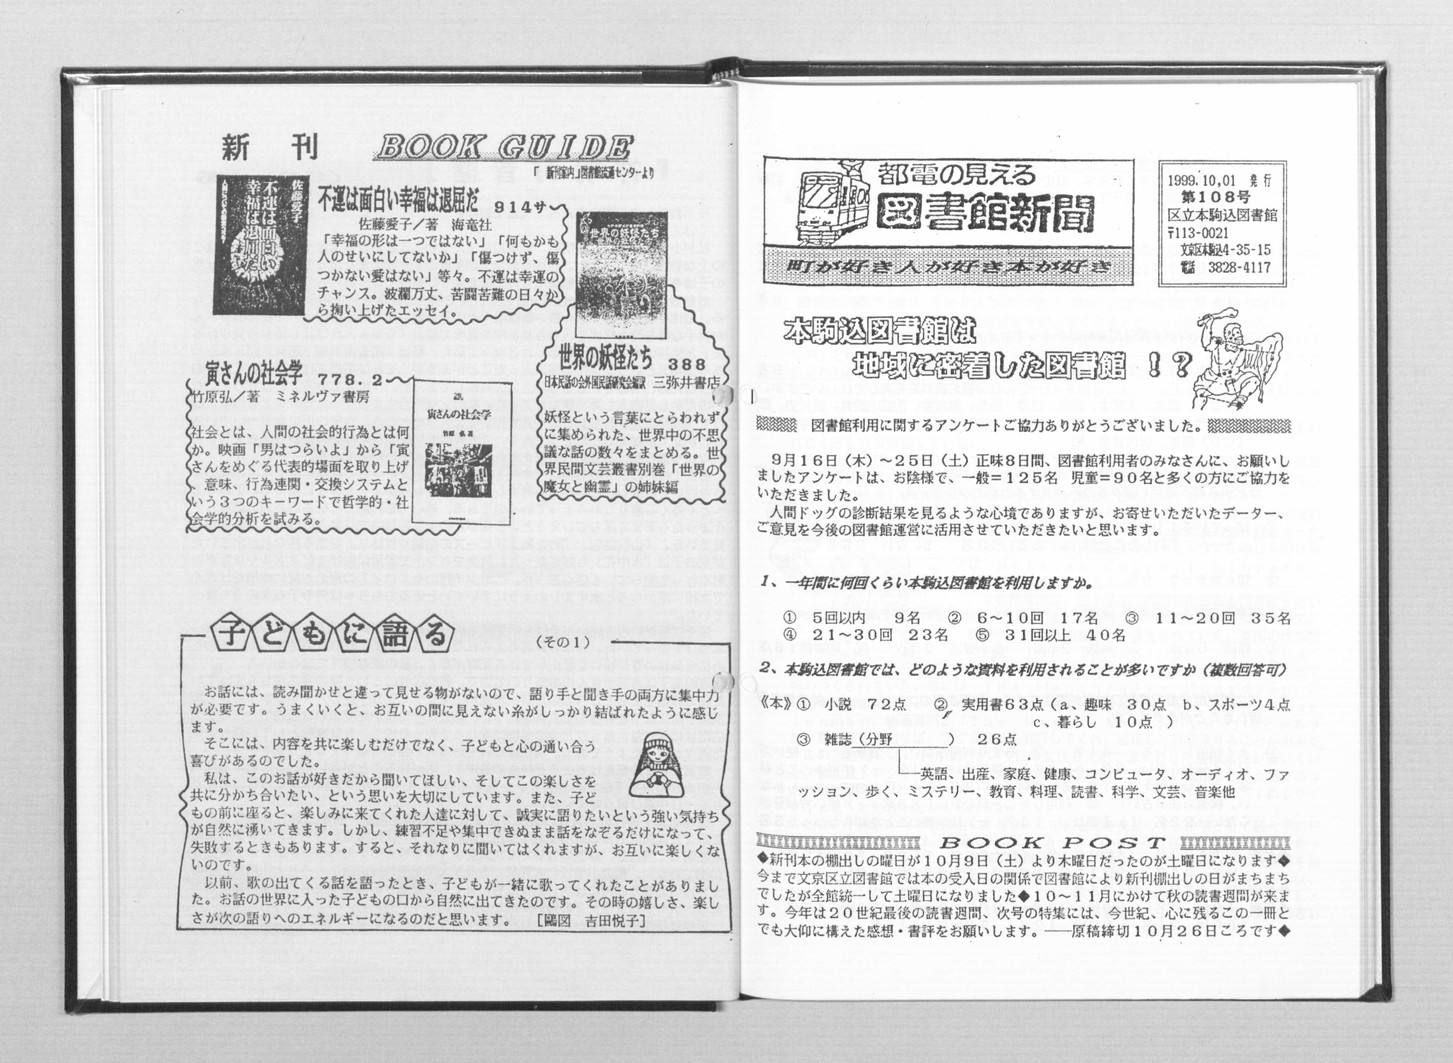 新刊 BOOK GUIDE
「新刊案内」図書館流通センターより
佐藤愛子
不運は面白い
幸福は退屈だ
不運は面白い幸福は退屈だ 914サ
佐藤愛子／著 海竜社
「幸福の形は一つではない」「何もかも
人のせいにしてないか」「傷つけず、傷
つかない愛はない」等々。不運は幸運の
チャンス。波瀾万丈、苦闘苦難の日々か
ら掬い上げたエッセイ。
世界の妖怪たち
世界の妖怪たち 388
日本民話の会外国民話研究会編訳 三弥井書店
妖怪という言葉にとらわれず
に集められた、世界中の不思
議な話の数々をまとめる。世
界民間文芸叢書別巻「世界の
魔女と幽霊」の姉妹編
寅さんの社会学 778.2
竹原弘／著 ミネルヴァ書房
社会とは、人間の社会的行為とは何
か。映画「男はつらいよ」から「寅
さんをめぐる代表的場面を取り上げ
、意味、行為連関・交換システムと
いう３つのキーワードで哲学的・社
会学的分析を試みる。
寅さんの社会学
竹原 弘 著
子どもに語る （その１）
お話には、読み聞かせと違って見せる物がないので、語り手と聞き手の両方に集中力
が必要です。うまくいくと、お互いの間に見えない糸がしっかり結ばれたように感じ
ます。
そこには、内容を共に楽しむだけでなく、子どもと心の通い合う
喜びがあるのでした。
私は、このお話が好きだから聞いてほしい、そしてこの楽しさを
共に分かち合いたい、という思いを大切にしています。また、子ど
もの前に座ると、楽しみに来てくれた人達に対して、誠実に語りたいという強い気持ち
が自然に湧いてきます。しかし、練習不足や集中できぬまま話をなぞるだけになって、
失敗するときもあります。すると、それなりに聞いてはくれますが、お互いに楽しくな
いのです。
以前、歌の出てくる話を語ったとき、子どもが一緒に歌ってくれたことがありまし
た。お話の世界に入った子どもの口から自然に出てきたのです。その時の嬉しさ、楽し
さが次の語りへのエネルギーになるのだと思います。 ［鷗図 吉田悦子］
都電の見える
図書館新聞
町が好き人が好き本が好き
1999.10,01 発行
第１０８号
区立本駒込図書館
〒113-0021
文京区本駒込4-35-15
☎ 3828-4117
本駒込図書館は
地域に密着した図書館 ！？
図書館利用に関するアンケートご協力ありがとうございました。
９月１６日（木）～２５日（土）正味８日間、図書館利用者のみなさんに、お願いし
ましたアンケートは、お陰様で、一般＝１２５名 児童＝９０名と多くの方にご協力を
いただきました。
人間ドッグの診断結果を見るような心境でありますが、お寄せいただいたデーター、
ご意見を今後の図書館運営に活用させていただきたいと思います。
１、一年間に何回くらい本駒込図書館を利用しますか。
① ５回以内 ９名 ② ６～１０回 １７名 ③ １１～２０回 ３５名
④ ２１～３０回 ２３名 ⑤ ３１回以上 ４０名
２、本駒込図書館では、どのような資料を利用されることが多いですか（複数回答可）
《本》① 小説 ７２点 ② 実用書６３点（ａ、趣味 ３０点 ｂ、スポーツ４点
ｃ、暮らし １０点 ）
③ 雑誌（分野 ） ２６点
英語、出産、家庭、健康、コンピュータ、オーディオ、ファ
ッション、歩く、ミステリー、教育、料理、読書、科学、文芸、音楽他
BOOK POST
◆新刊本の棚出しの曜日が１０月９日（土）より木曜日だったのが土曜日になります◆
今まで文京区立図書館では本の受入日の関係で図書館により新刊棚出しの日がまちまち
でしたが全館統一して土曜日になりました◆１０～１１月にかけて秋の読書週間が来ま
す。今年は２０世紀最後の読書週間、次号の特集には、今世紀、心に残るこの一冊と
でも大仰に構えた感想・書評をお願いします。──原稿締切１０月２６日ころです◆